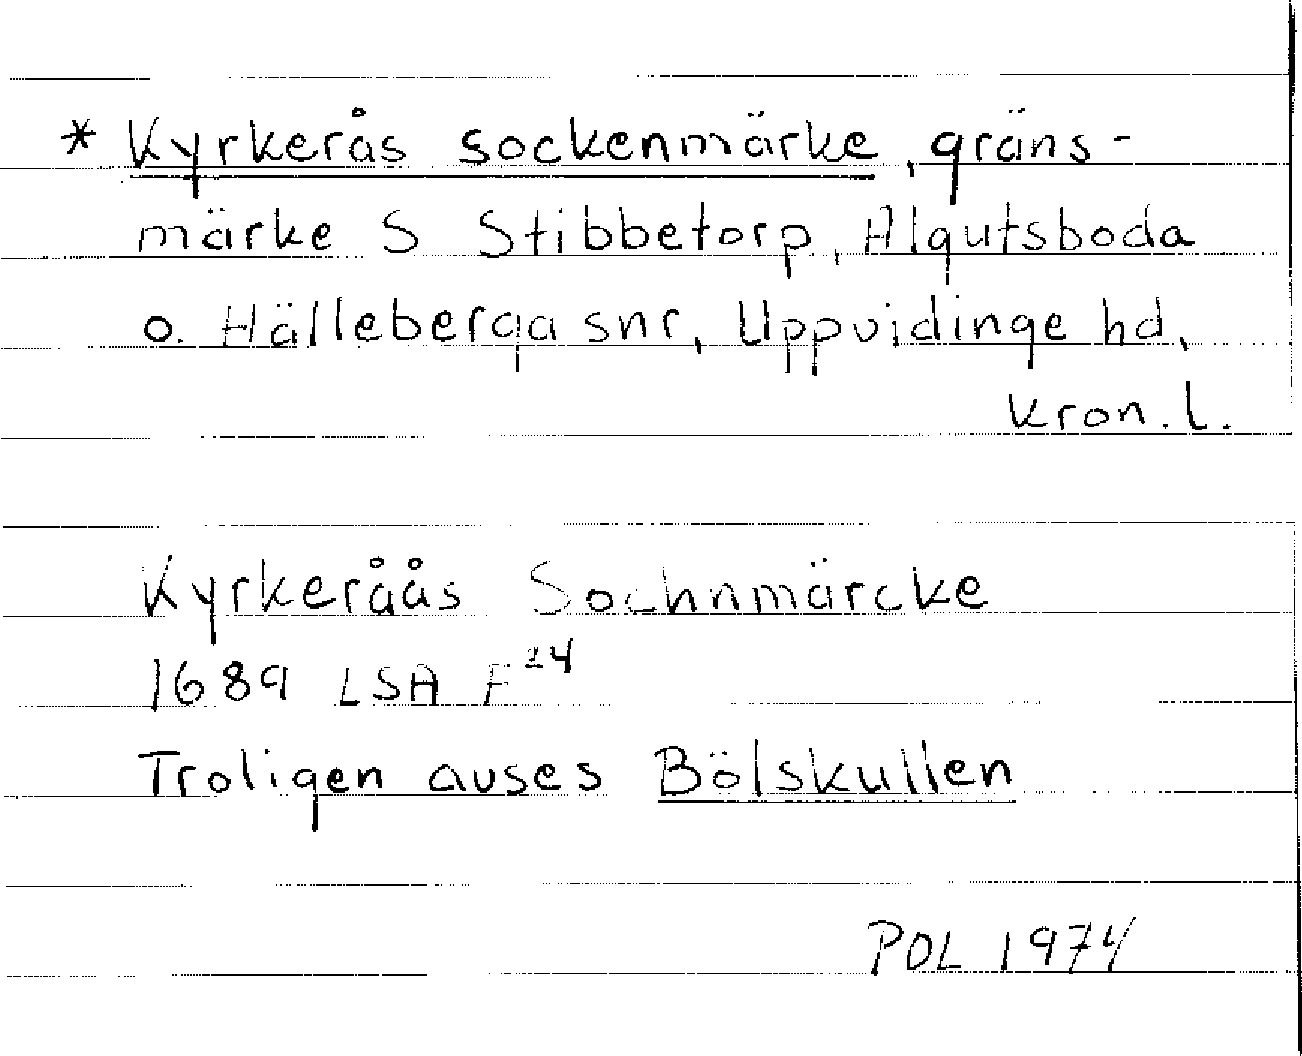 * Kyrkerås sockenmärke, gräns-
märke S Stibbetorp, Algutsboda
o. Hälleberga snr, Uppvidinge hd,
kron. l.
Kyrkeråås Sochnmärcke
1689 LSA F²⁴
Troligen avses Bölskullen
POL 1974